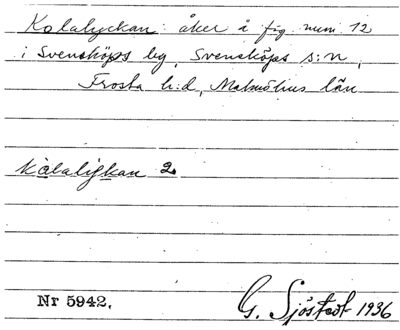 Kolalyckan: åker å fig. num 12
i Svensköps by, Svensköps s:n,
Frosta h:d, Malmöhus län
Kålalyckan 2.
Nr 5942.
G. Sjöstedt 1936